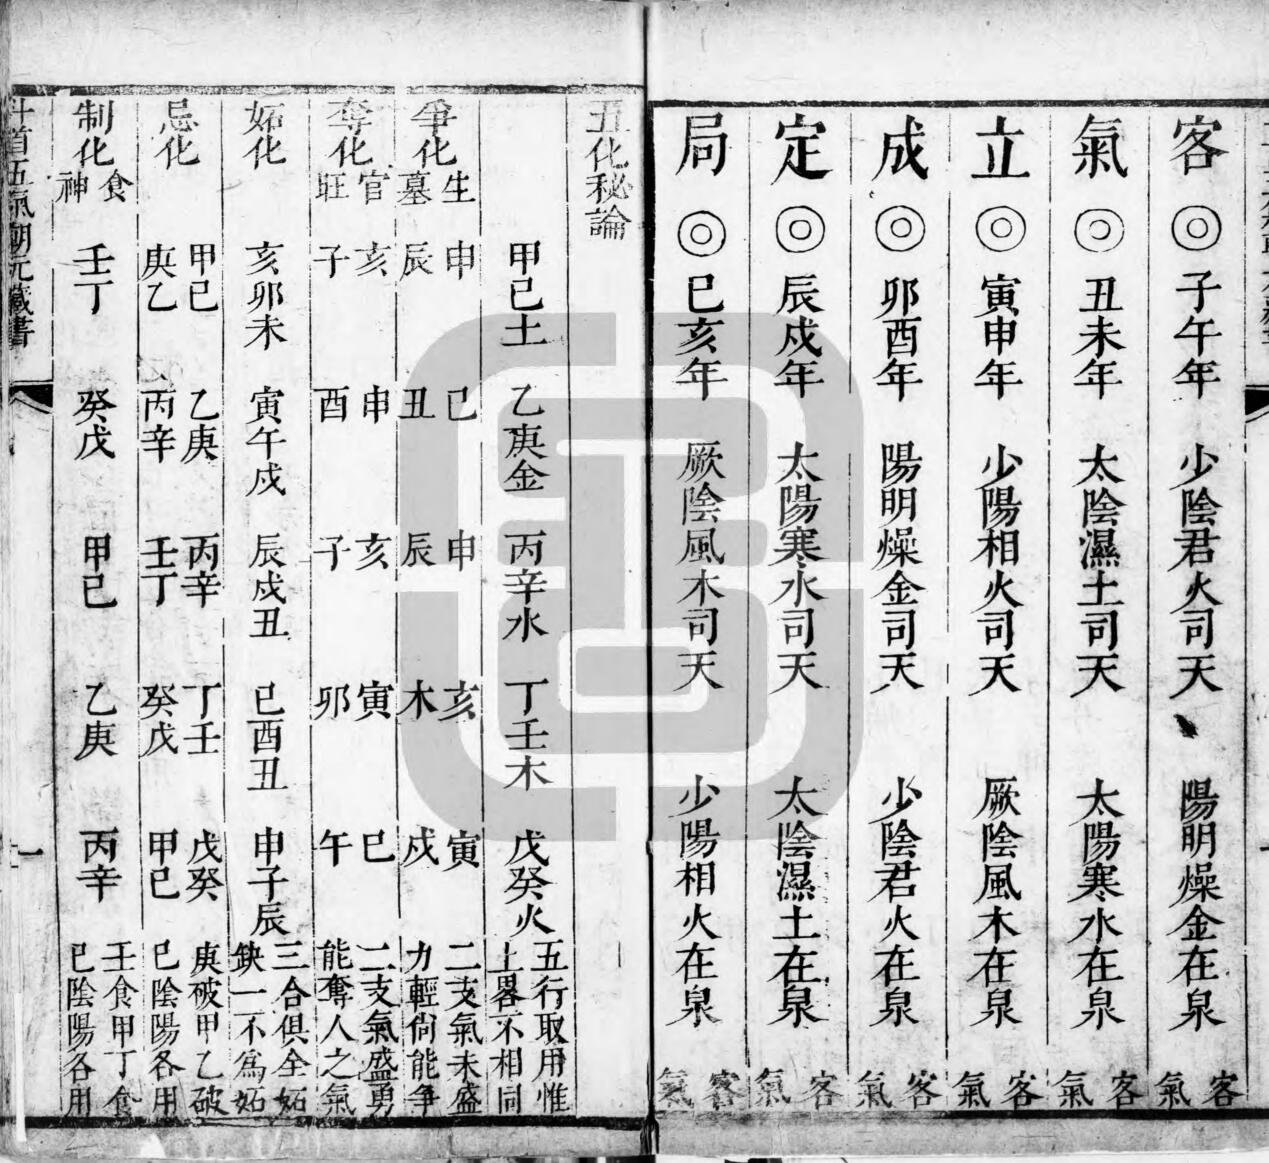 客◎子午年　少陰君火司天　陽明燥金在泉　客氣
氣◎丑未年　太陰濕土司天　太陽寒水在泉　客氣
立◎寅申年　少陽相火司天　厥陰風木在泉　客氣
成◎卯酉年　陽明燥金司天　少陰君火在泉　客氣
定◎辰戍年　太陽寒水司天　太陰濕土在泉　客氣
局◎巳亥年　厥陰風木司天　少陽相火在泉　客氣
五化秘論
甲己土　乙庚金　丙辛水　丁壬木　戊癸火　五行取用惟土畧不相同
爭化生墓　申辰　巳丑　申辰　亥木　寅戍　二支氣未盛力輕尙能爭
奪化官旺　亥子　申酉　亥子　寅卯　巳午　二支氣盛勇能奪人之氣
妬化　亥卯未　寅午戍　辰戍丑　巳酉丑　申子辰　三合俱全妬缺一不為妬
忌化　甲己庚乙　乙庚丙辛　丙辛壬丁　丁壬癸戊　戊癸甲己　庚破甲乙破己陰陽各用
制化食神　壬丁　癸戊　甲己　乙庚　丙辛　壬食甲丁食己陰陽各用
斗首五氣朝元藏書　一